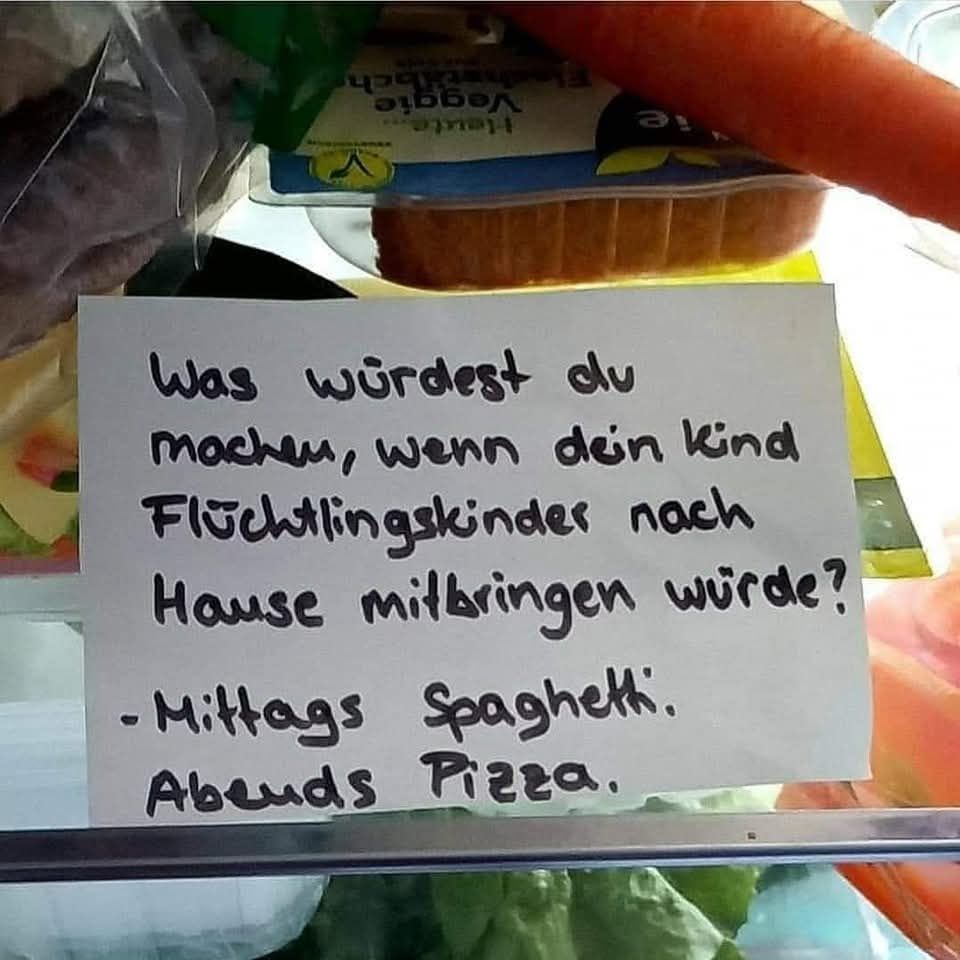 Heute...
Veggie
Was würdest du
machen, wenn dein Kind
Flüchtlingskinder nach
Hause mitbringen würde?
- Mittags Spaghetti.
Abends Pizza.